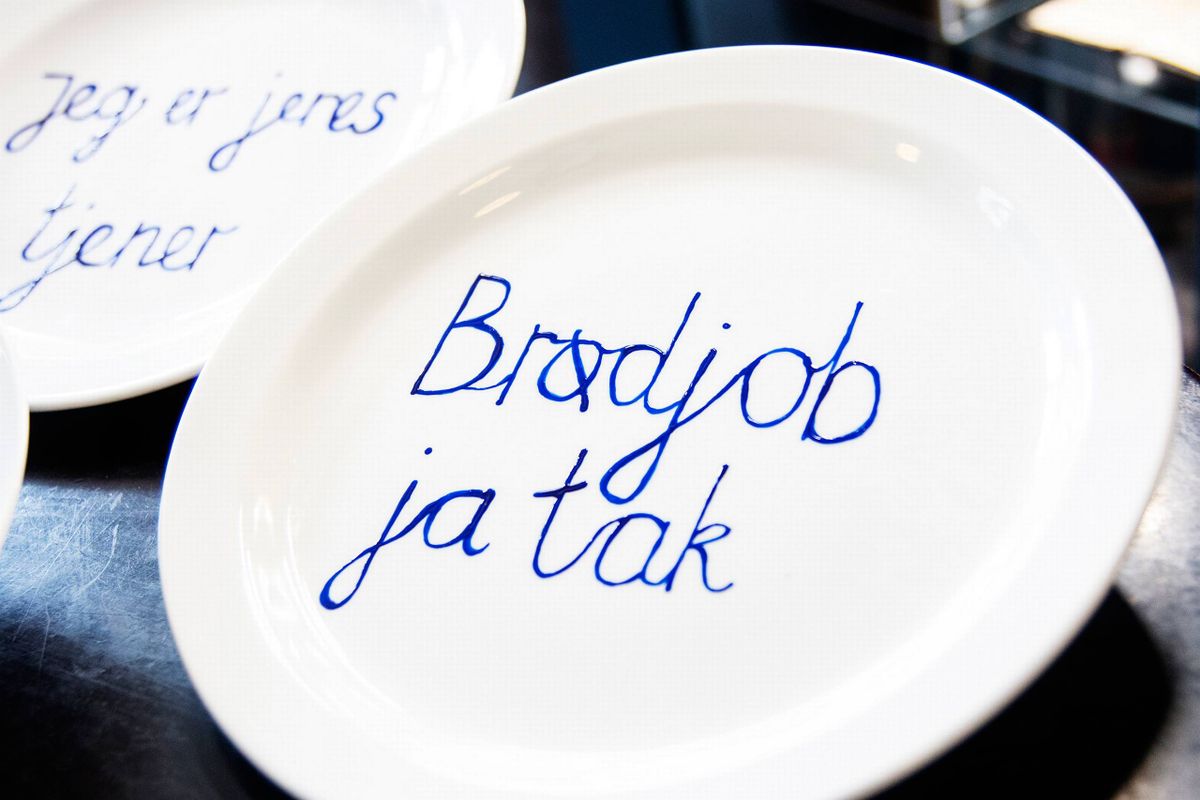 Jeg er jeres
tjener
Brødjob
ja tak